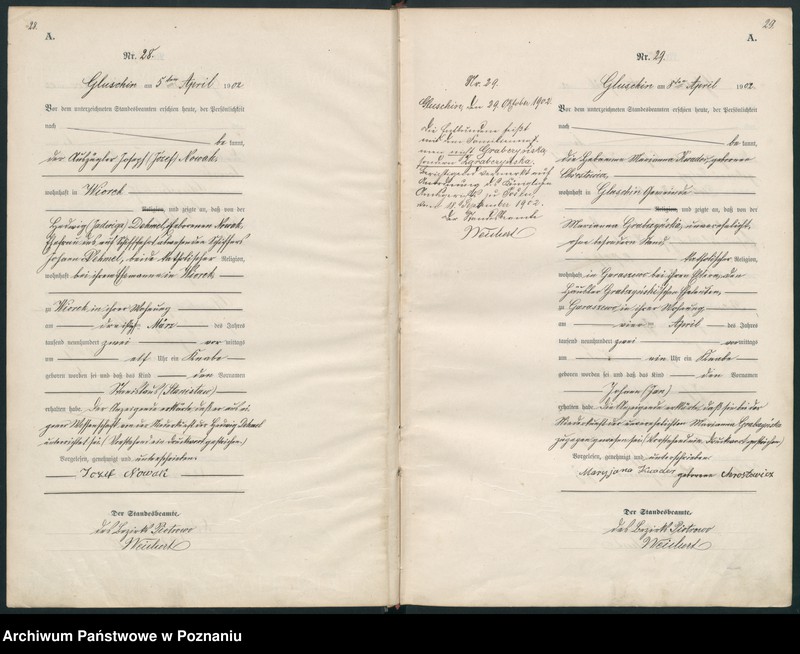 28.
A.
Nr. 28.
Gluschin am 5ten April 1902
Vor dem unterzeichneten Standesbeamten erschien heute, der Persönlichkeit
nach
be kannt,
der Auszügler Josef (Józef) Nowak
wohnhaft in Wiorek
Religion, und zeigte an, daß von der
Hedwig (Jadwiga) Dehmel, geborenen Nowak,
Ehefrau des auf Schiffahrt abwesenden Schiffers
Johann Dehmel, beide katholischer Religion,
wohnhaft bei ihrem Ehemanne in Wiorek
zu Wiorek in ihrer Wohnung
am März des Jahres
tausend neunhundert zwei vor mittags
um elf Uhr ein Knabe
geboren worden sei und daß das Kind den Vornamen
Stanislaus (Stanisław)
erhalten habe. Der Anzeigende erklärte, daß er aus ei-
gener Wissenschaft von der Niederkunft der Hedwig Dehmel
unterrichtet sei. (Vorstehend ein Druckwort gestrichen.)
Vorgelesen, genehmigt und unterschrieben
Józef Nowak
Der Standesbeamte
des Bezirks Piotrowo
Weichert
Nr. 29.
Gluschin, den 29. Oktober 1902.
nicht Grabczyńska,
sondern Zgrabczyńska.
Anordnung des Königlichen
Amtsgerichts zu Posen
1902.
Der Standesbeamte
Weichert
29.
A.
Nr. 29.
Gluschin am 8ten April 1902.
Vor dem unterzeichneten Standesbeamten erschien heute, der Persönlichkeit
nach
be kannt,
die Hebamme Marianna geborene
wohnhaft in Gluschin
Religion, und zeigte an, daß von der
Marianna unverehelicht,
ohne besonderen Stand
katholischer Religion,
wohnhaft in Garaszewo bei ihren Eltern, den
Häusler Eheleuten,
zu Garaszewo in ihrer Wohnung
am vier April des Jahres
tausend neunhundert zwei vor mittags
um ein Uhr ein Knabe
geboren worden sei und daß das Kind den Vornamen
Johann (Jan)
erhalten habe. Die Anzeigende erklärte, daß sie bei der
Niederkunft der unverehelichten Marianna
zugegen gewesen sei. Vorstehend ein Druckwort gestrichen.
Vorgelesen, genehmigt und unterschrieben
Maryjana geborene
Der Standesbeamte
des Bezirks Piotrowo
Weichert
Archiwum Państwowe w Poznaniu